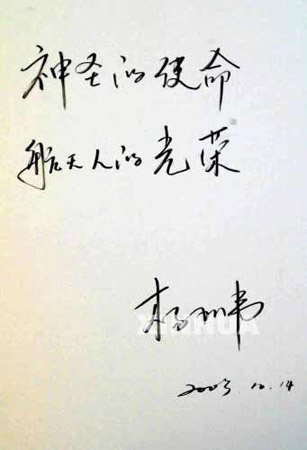 神圣的使命
航天人的光荣
杨利伟
2003.10.14
XINHUA